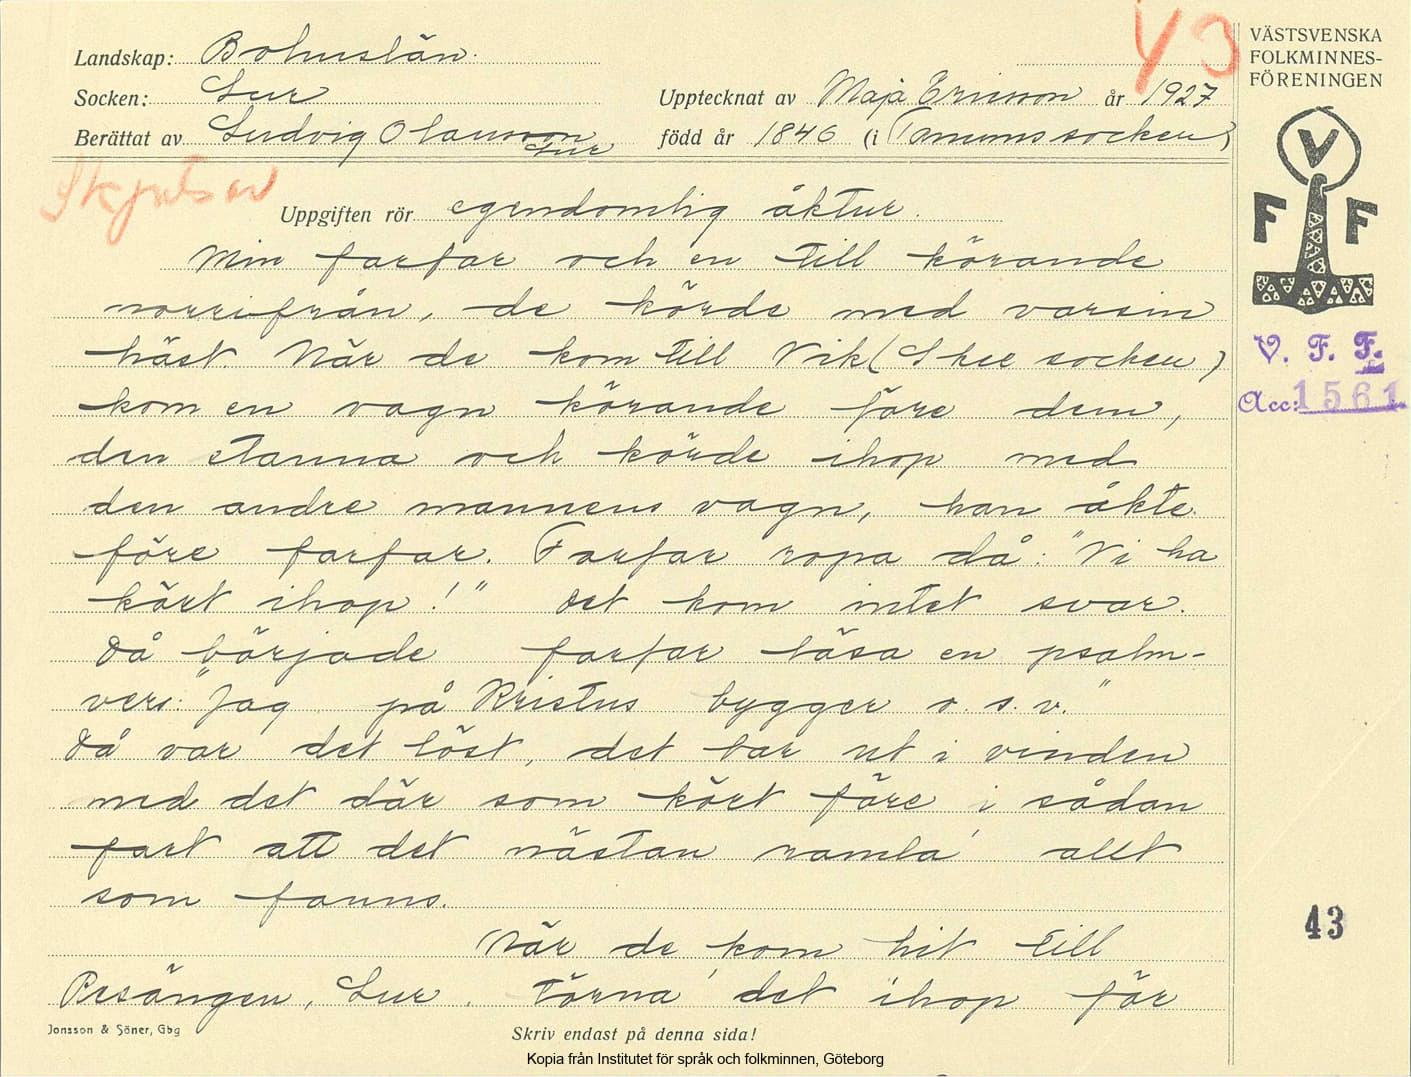 43
VÄSTSVENSKA
FOLKMINNES-
FÖRENINGEN
Landskap: Bohuslän.
Socken: Lur
Upptecknat av Maja Ericson år 1927
Berättat av Ludvig Olausson Lur född år 1846 (i Tanums socken)
Skjutsar
Uppgiften rör egendomlig åktur.
Min farfar och en till körande
norrifrån, de körde med varsin
häst. När de kom till Vik (Skee socken)
kom en vagn körande före dem,
den stanna och körde ihop med
den andre mannens vagn, han åkte
före farfar. Farfar ropa då: "Vi ha
kört ihop!" Det kom intet svar.
Då började farfar läsa en psalm-
vers: "Jag på Kristus bygger o.s.v."
Då var det löst, det bar ut i vinden
med det där som kört före i sådan
fart att det nästan ramla allt
som fanns.
När de kom hit till
Resängen, Lur, törna det ihop för
V F F
V. F. F.
Acc: 1561
43
Jonsson & Söner, Gbg
Skriv endast på denna sida!
Kopia från Institutet för språk och folkminnen, Göteborg